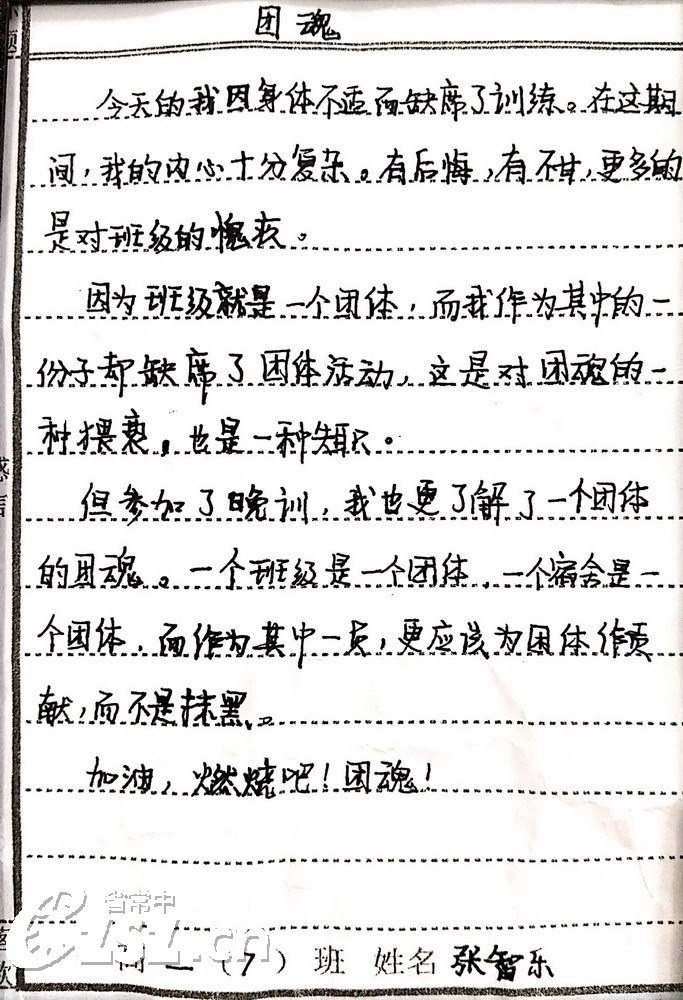 团魂
今天的我因身体不适而缺席了训练。在这期
间，我的内心十分复杂。有后悔，有不甘，更多的
是对班级的愧疚。
因为班级就是一个团体，而我作为其中的一
份子却缺席了团体活动，这是对团魂的一
种猥亵，也是一种失职。
但参加了晚训，我也更了解了一个团体
的团魂。一个班级是一个团体，一个宿舍是一
个团体，而作为其中一员，更应该为团体作贡
献，而不是抹黑。
加油，燃烧吧！团魂！
感言
省常中
高一（7）班 姓名 张智乐